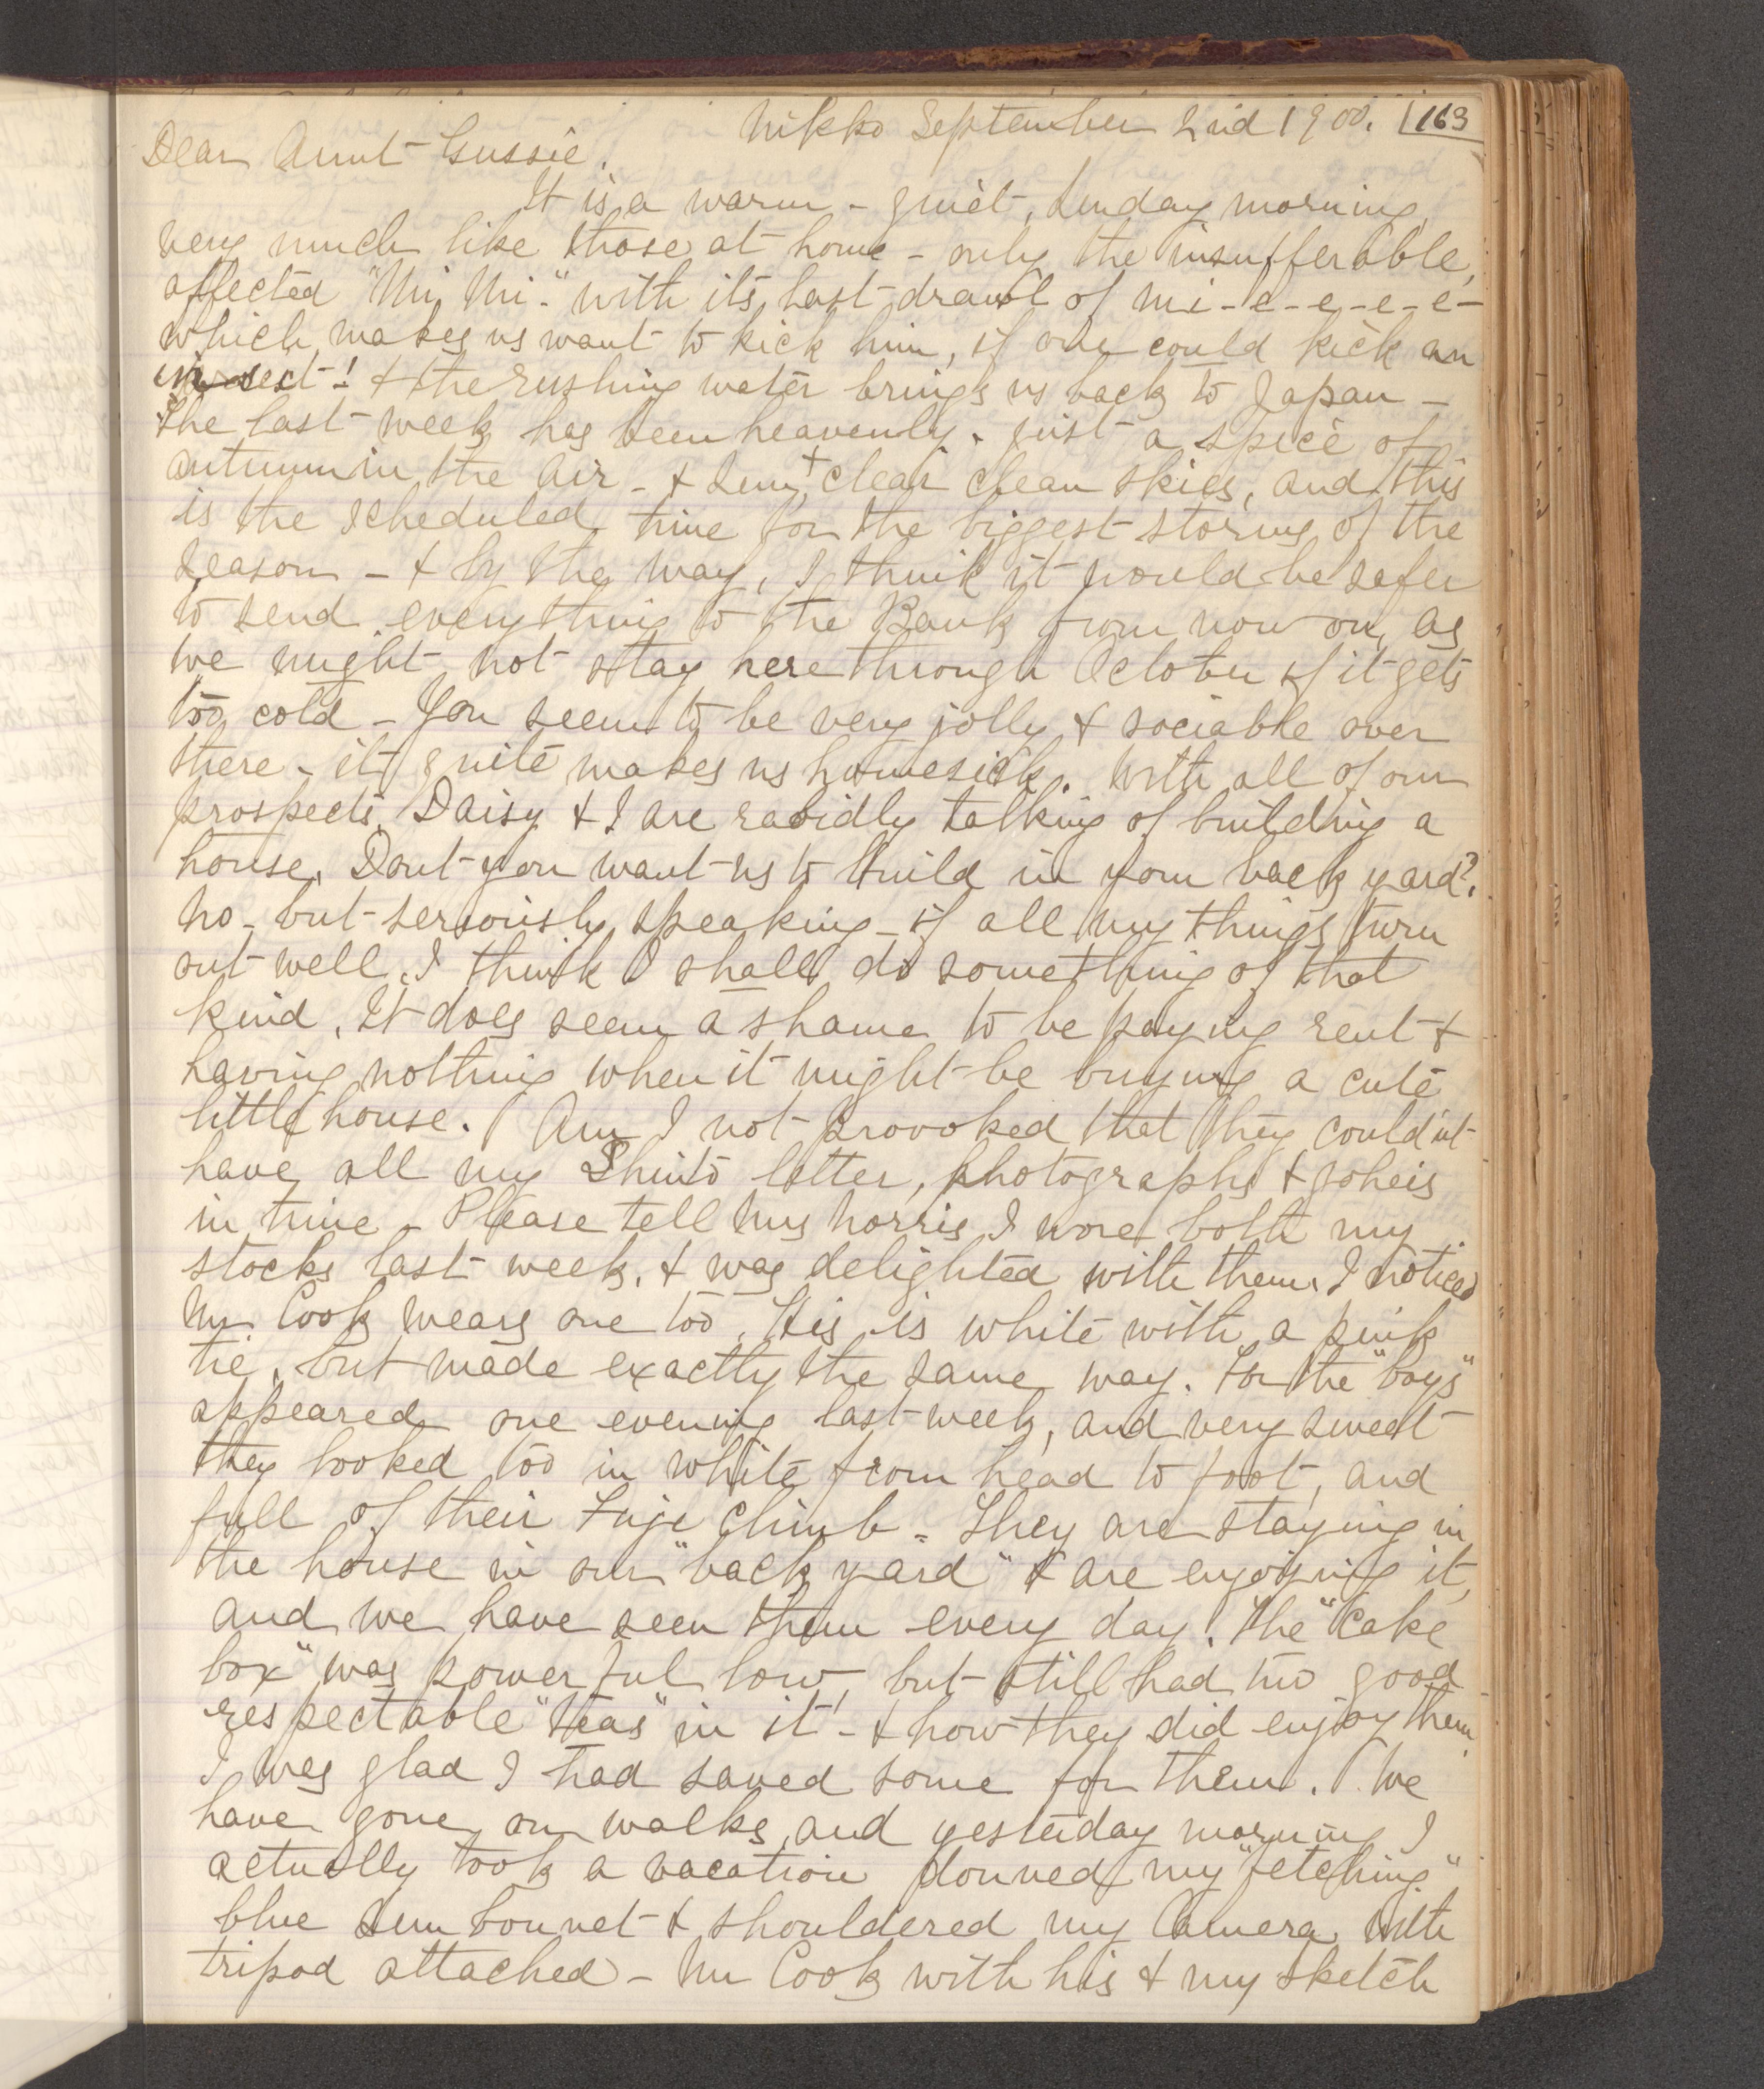 Nikko September 2nd 1900. 163
Dear Aunt Gussie.
It is a warm - quiet, Sunday morning,
very much like those at home - only the insufferable,
affected "Mi, Mi-" with its last drawl of mi-e-e-e-e-e-
which makes us want to kick him, if one could kick an
insect! & the rushing water brings us back to Japan -
The last week has been heavenly. just a spice of
autumn in the air - & sun & clear clean skies, and this
is the scheduled time for the biggest storms of the
season - & by the way, I think it would be safer
to send everything to the Bank from now on, as
we might not stay here through October if it gets
too cold - You seem to be very jolly & sociable over
there - it quite makes us homesick. With all of our
prospects, Daisy & I are rabidly talking of building a
house. Dont you want us to build in your back yard?
No - but seriously speaking - if all my things turn
out well, I think I shall do something of that
kind. It does seem a shame to be paying rent &
having nothing when it might be buying a cute
little house. Am I not provoked that they could'nt
have all my Shinto letter, photographs & goheis
in time - Please tell Mrs Norris I wore both my
stocks last week, & was delighted with them. I noticed
Mr Cook wears one too. His is white with a pink
tie, but made exactly the same way. For the "boys"
appeared one evening last week, and very sweet
they looked too in white from head to foot, and
full of their Fuji climb - They are staying in
the house in our "back yard" & are enjoying it,
and we have seen them every day. The "Cake
box" was powerful low, but still had two good
respectable "teas" in it! - & how they did enjoy them
I was glad I had saved some for them. We
have gone on walks, and yesterday morning I
actually took a vacation donned my "fetching"
blue sun bonnet & shouldered my Camera, with
tripod attached - Mr Cook with his & my sketch